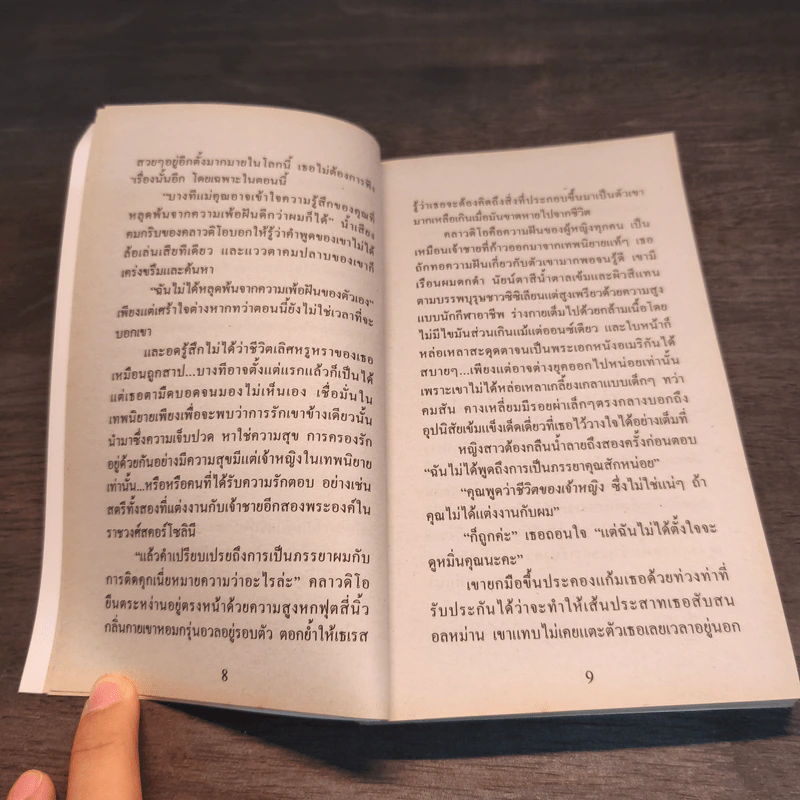 สวยๆอยู่อีกตั้งมากมายในโลกนี้ เธอไม่ต้องการฟัง
เรื่องนั้นอีก โดยเฉพาะในตอนนี้
“บางทีแม่คุณอาจเข้าใจความรู้สึกของคุณที่
หลุดพ้นจากความเพ้อฝันดีกว่าผมก็ได้” น้ำเสียง
คมกริบของคลาวดิโอบอกให้รู้ว่าคำพูดของเขาไม่ได้
ล้อเล่นเสียทีเดียว และแววตาคมปลาบของเขาก็
เคร่งขรึมและค้นหา
“ฉันไม่ได้หลุดพ้นจากความเพ้อฝันของตัวเอง”
เพียงแต่เศร้าใจต่างหากทว่าตอนนี้ยังไม่ใช่เวลาที่จะ
บอกเขา
และอดรู้สึกไม่ได้ว่าชีวิตเลิศหรูหราของเธอ
เหมือนถูกสาป...บางทีอาจตั้งแต่แรกแล้วก็เป็นได้
แต่เธอตามืดบอดจนมองไม่เห็นเอง เชื่อมั่นใน
เทพนิยายเพียงเพื่อจะพบว่าการรักเขาข้างเดียวนั้น
นำมาซึ่งความเจ็บปวด หาใช่ความสุข การครองรัก
อยู่ด้วยกันอย่างมีความสุขมีแต่เจ้าหญิงในเทพนิยาย
เท่านั้น...หรือหรือคนที่ได้รับความรักตอบ อย่างเช่น
สตรีทั้งสองที่แต่งงานกับเจ้าชายอีกสองพระองค์ใน
ราชวงศ์สคอร์โซลินี
“แล้วคำเปรียบเปรยถึงการเป็นภรรยาผมกับ
การติดคุกเนี่ยหมายความว่าอะไรล่ะ” คลาวดิโอ
ยืนตระหง่านอยู่ตรงหน้าด้วยความสูงหกฟุตสี่นิ้ว
กลิ่นกายเขาหอมกรุ่นอวลอยู่รอบตัว ตอกย้ำให้เธเรส
8
รู้ว่าเธอจะต้องคิดถึงสิ่งที่ประกอบขึ้นมาเป็นตัวเขา
มากเหลือเกินเมื่อมันขาดหายไปจากชีวิต
คลาวดิโอคือความฝันของผู้หญิงทุกคน เป็น
เหมือนเจ้าชายที่ก้าวออกมาจากเทพนิยายแท้ๆ เธอ
ถักทอความฝันเกี่ยวกับตัวเขามากพอจนรู้ดี เขามี
เรือนผมดกดำ นัยน์ตาสีน้ำตาลเข้มและผิวสีแทน
ตามบรรพบุรุษชาวซิซิเลียนแต่สูงเพรียวด้วยความสูง
แบบนักกีฬาอาชีพ ร่างกายเต็มไปด้วยกล้ามเนื้อโดย
ไม่มีไขมันส่วนเกินแม้แต่ออนซ์เดียว และใบหน้าก็
หล่อเหลาสะดุดตาจนเป็นพระเอกหนังอเมริกันได้
สบายๆ...เพียงแต่อาจต่างยุคออกไปหน่อยเท่านั้น
เพราะเขาไม่ได้หล่อเหลาเกลี้ยงเกลาแบบเด็กๆ ทว่า
คมสัน คางเหลี่ยมมีรอยผ่าเล็กๆตรงกลางบอกถึง
อุปนิสัยเข้มแข็งเด็ดเดี่ยวที่เธอไว้วางใจได้อย่างเต็มที่
หญิงสาวต้องกลืนน้ำลายถึงสองครั้งก่อนตอบ
“ฉันไม่ได้พูดถึงการเป็นภรรยาคุณสักหน่อย”
“คุณพูดว่าชีวิตของเจ้าหญิง ซึ่งไม่ใช่แน่ๆ ถ้า
คุณไม่ได้แต่งงานกับผม”
“ก็ถูกค่ะ” เธอถอนใจ “แต่ฉันไม่ได้ตั้งใจจะ
ดูหมิ่นคุณนะคะ”
เขายกมือขึ้นประคองแก้มเธอด้วยท่วงท่าที่
รับประกันได้ว่าจะทำให้เส้นประสาทเธอสับสน
อลหม่าน เขาแทบไม่เคยแตะตัวเธอเลยเวลาอยู่นอก
9